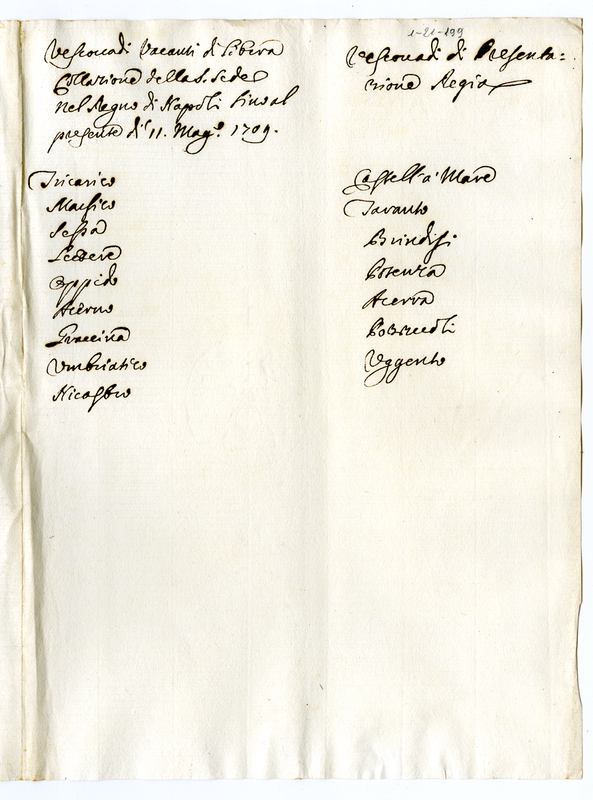 1-21-199
Vescovadi Vacanti di libera
Collazione della S. Sede
nel Regno di Napoli sino al
presente dì 11. Mago. 1709.
Tricarico
Marsico
Sessa
Lettere
Oppido
Acerno
Gravina
Umbriatico
Nicastro
Vescovadi di Presenta=
zione Regia
Castell'a Mare
Taranto
Brindisi
Potenza
Acerra
Pozzuoli
Uggento